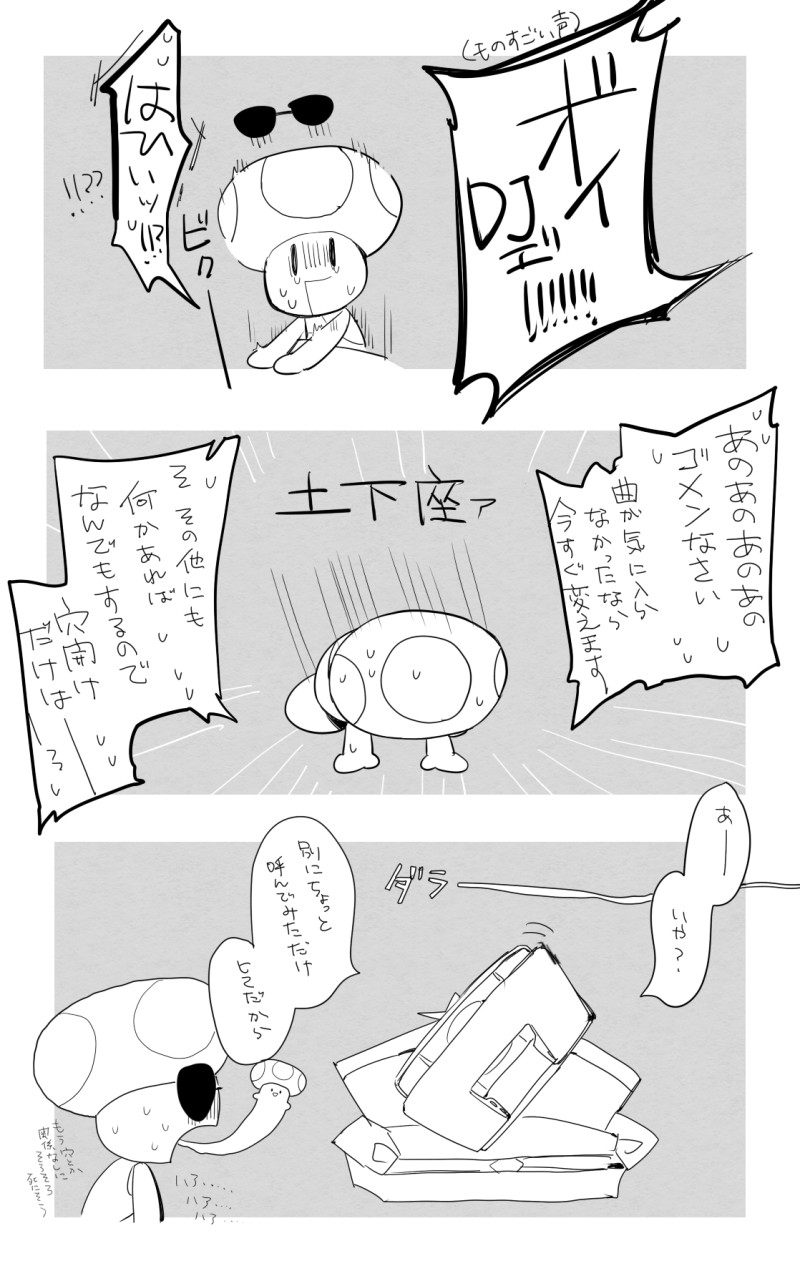 (ものすごい声)
オイ
DJデ!!!!!!!
はひぃッ!!?
!!??
ビク
あのあのあのあの
ゴメンなさい
曲が気に入ら
なかったなら
今すぐ変えます
土下座ァ
そ その他にも
何かあれば
なんでもするので
穴開け
だけは
あー
いや?
ダラ
別にちょっと
呼んでみただけ
ヒマだから
ハァ‥‥
ハァ‥‥
ハァ‥‥
もう穴とか
関係なしに
そろそろ
死にそう